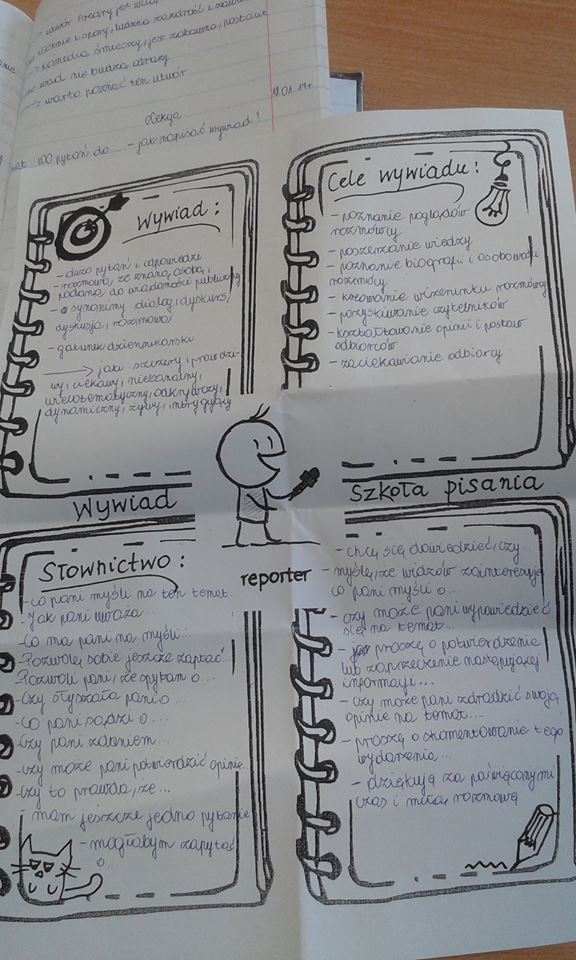 → utwór Fredry jest
→ komedia śmieszy, jest zabawna, postawy
wad nie budzą
→ warto poznać ten utwór
18.01.17r.
Lekcja
100 pytań do... – jak napisać wywiad!
Wywiad:
– dużo pytań i odpowiedzi
– rozmowa ze znaną osobą,
podana do wiadomości publicznej
– synonimy: dialog, dyskurs,
dyskusja, rozmowa
– gatunek dziennikarski
→ jaki: szczery, prawdzi-
wy, ciekawy, niebanalny,
wielotematyczny, odkrywczy,
dynamiczny, żywy, intrygujący
Cele wywiadu:
– poznanie poglądów
rozmówcy
– poszerzanie wiedzy
– poznanie biografii i osobowości
rozmówcy
– kreowanie wizerunku rozmówcy
– pozyskiwanie czytelników
– kształtowanie opinii i postaw
odbiorców
– zaciekawianie odbiorcy
Wywiad
Szkoła pisania
reporter
Słownictwo:
– co pani myśli na ten temat...
– Jak pani uważa...
– Co ma pani na myśli...
Pozwolę sobie jeszcze zapytać...
Pozwoli pani, że spytam o...
– Czy słyszała pani o...
– Co pani sądzi o...
– Czy pani zdaniem...
– czy może pani potwierdzić opinię...
– Czy to prawda, że...
i mam jeszcze jedno pytanie
– mogłabym zapytać
o...
– chcę się dowiedzieć, czy...
– myślę, że widzów zainteresuje
co pani myśli o...
– czy może pani wypowiedzieć
się na temat...
– proszę o potwierdzenie
lub zaprzeczenie następującej
informacji...
– czy może pani zdradzić swoją
opinię na temat...
– proszę o skomentowanie tego
wydarzenia...
– dziękuję za poświęcony mi
czas i miłą rozmowę